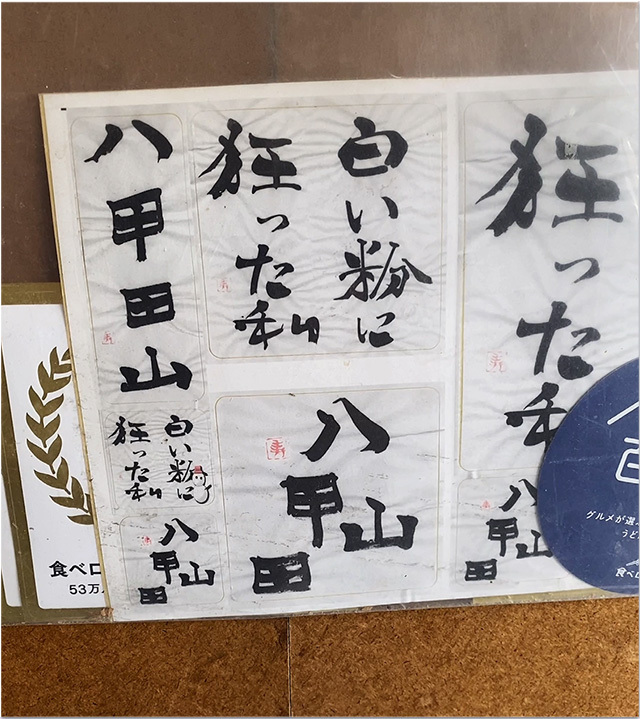 八甲田山
白い粉に
狂った私
狂った
白い粉に
狂った私
八甲田山
八甲田山
八甲田山
食べロ
53万
グルメが選
うど
食べロ